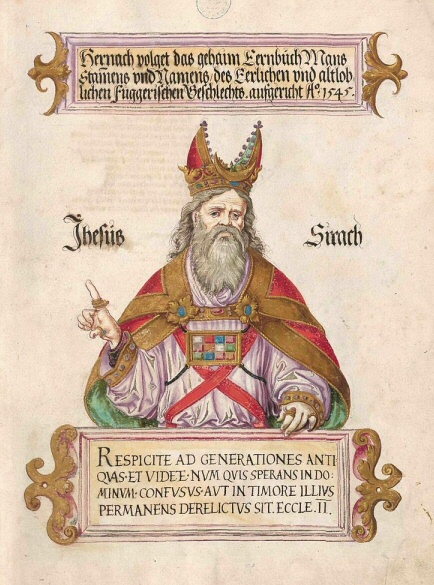 Hernach volget das gehaim Eernbuch Mans
Stamens und Namens, des Eerlichen vnd altlob
lichen Fuggerischen Geschlechts. aufgericht A.º 1545.
Jhesüs
Sirach
RESPICITE AD GENERATIONES ANTI
QVAS·ET VIDETE·NVM QVIS SPERANS IN DO:
MINVM·CONFVSVS·AVT IN TIMORE ILLIVS
PERMANENS DERELICTVS SIT. ECCLE.II.